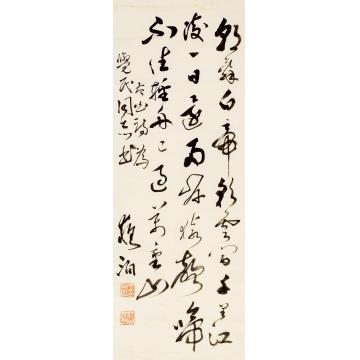 朝辭白帝彩雲間千里江
陵一日還兩岸猿聲啼
不住輕舟已過萬重山
詩為
覺民同志書